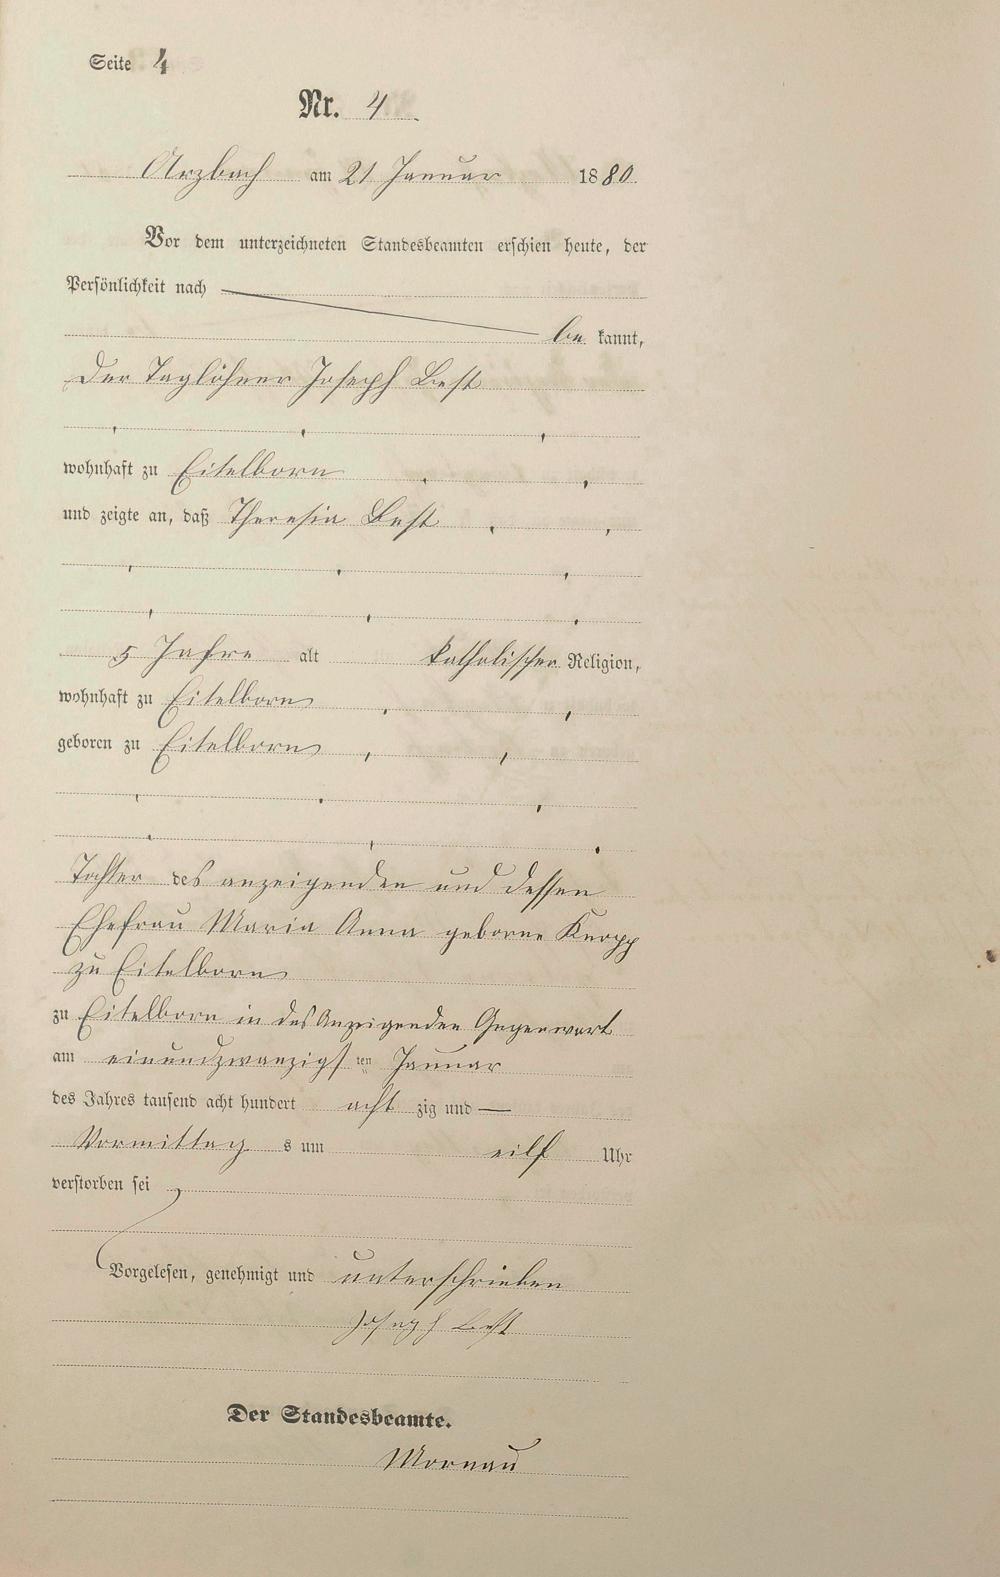 Seite 4
Nr. 4
Arzbach am 21 Januar 1880.
Vor dem unterzeichneten Standesbeamten erschien heute, der
Persönlichkeit nach
be kannt,
Der Taglöhner Joseph Best
wohnhaft zu Eitelborn
und zeigte an, daß Theresia Best
5 Jahre alt katholischer Religion,
wohnhaft zu Eitelborn
geboren zu Eitelborn
Tochter des anzeigenden und dessen
Ehefrau Maria Anna geborne Knopp
zu Eitelborn
zu Eitelborn in des Anzeigenden Gegenwart
am einundzwanzigs ten Januar
des Jahres tausend acht hundert acht zig und —
Vormittag s um eilf Uhr
verstorben sei
Vorgelesen, genehmigt und unterschrieben
Joseph Best
Der Standesbeamte.
Mornau